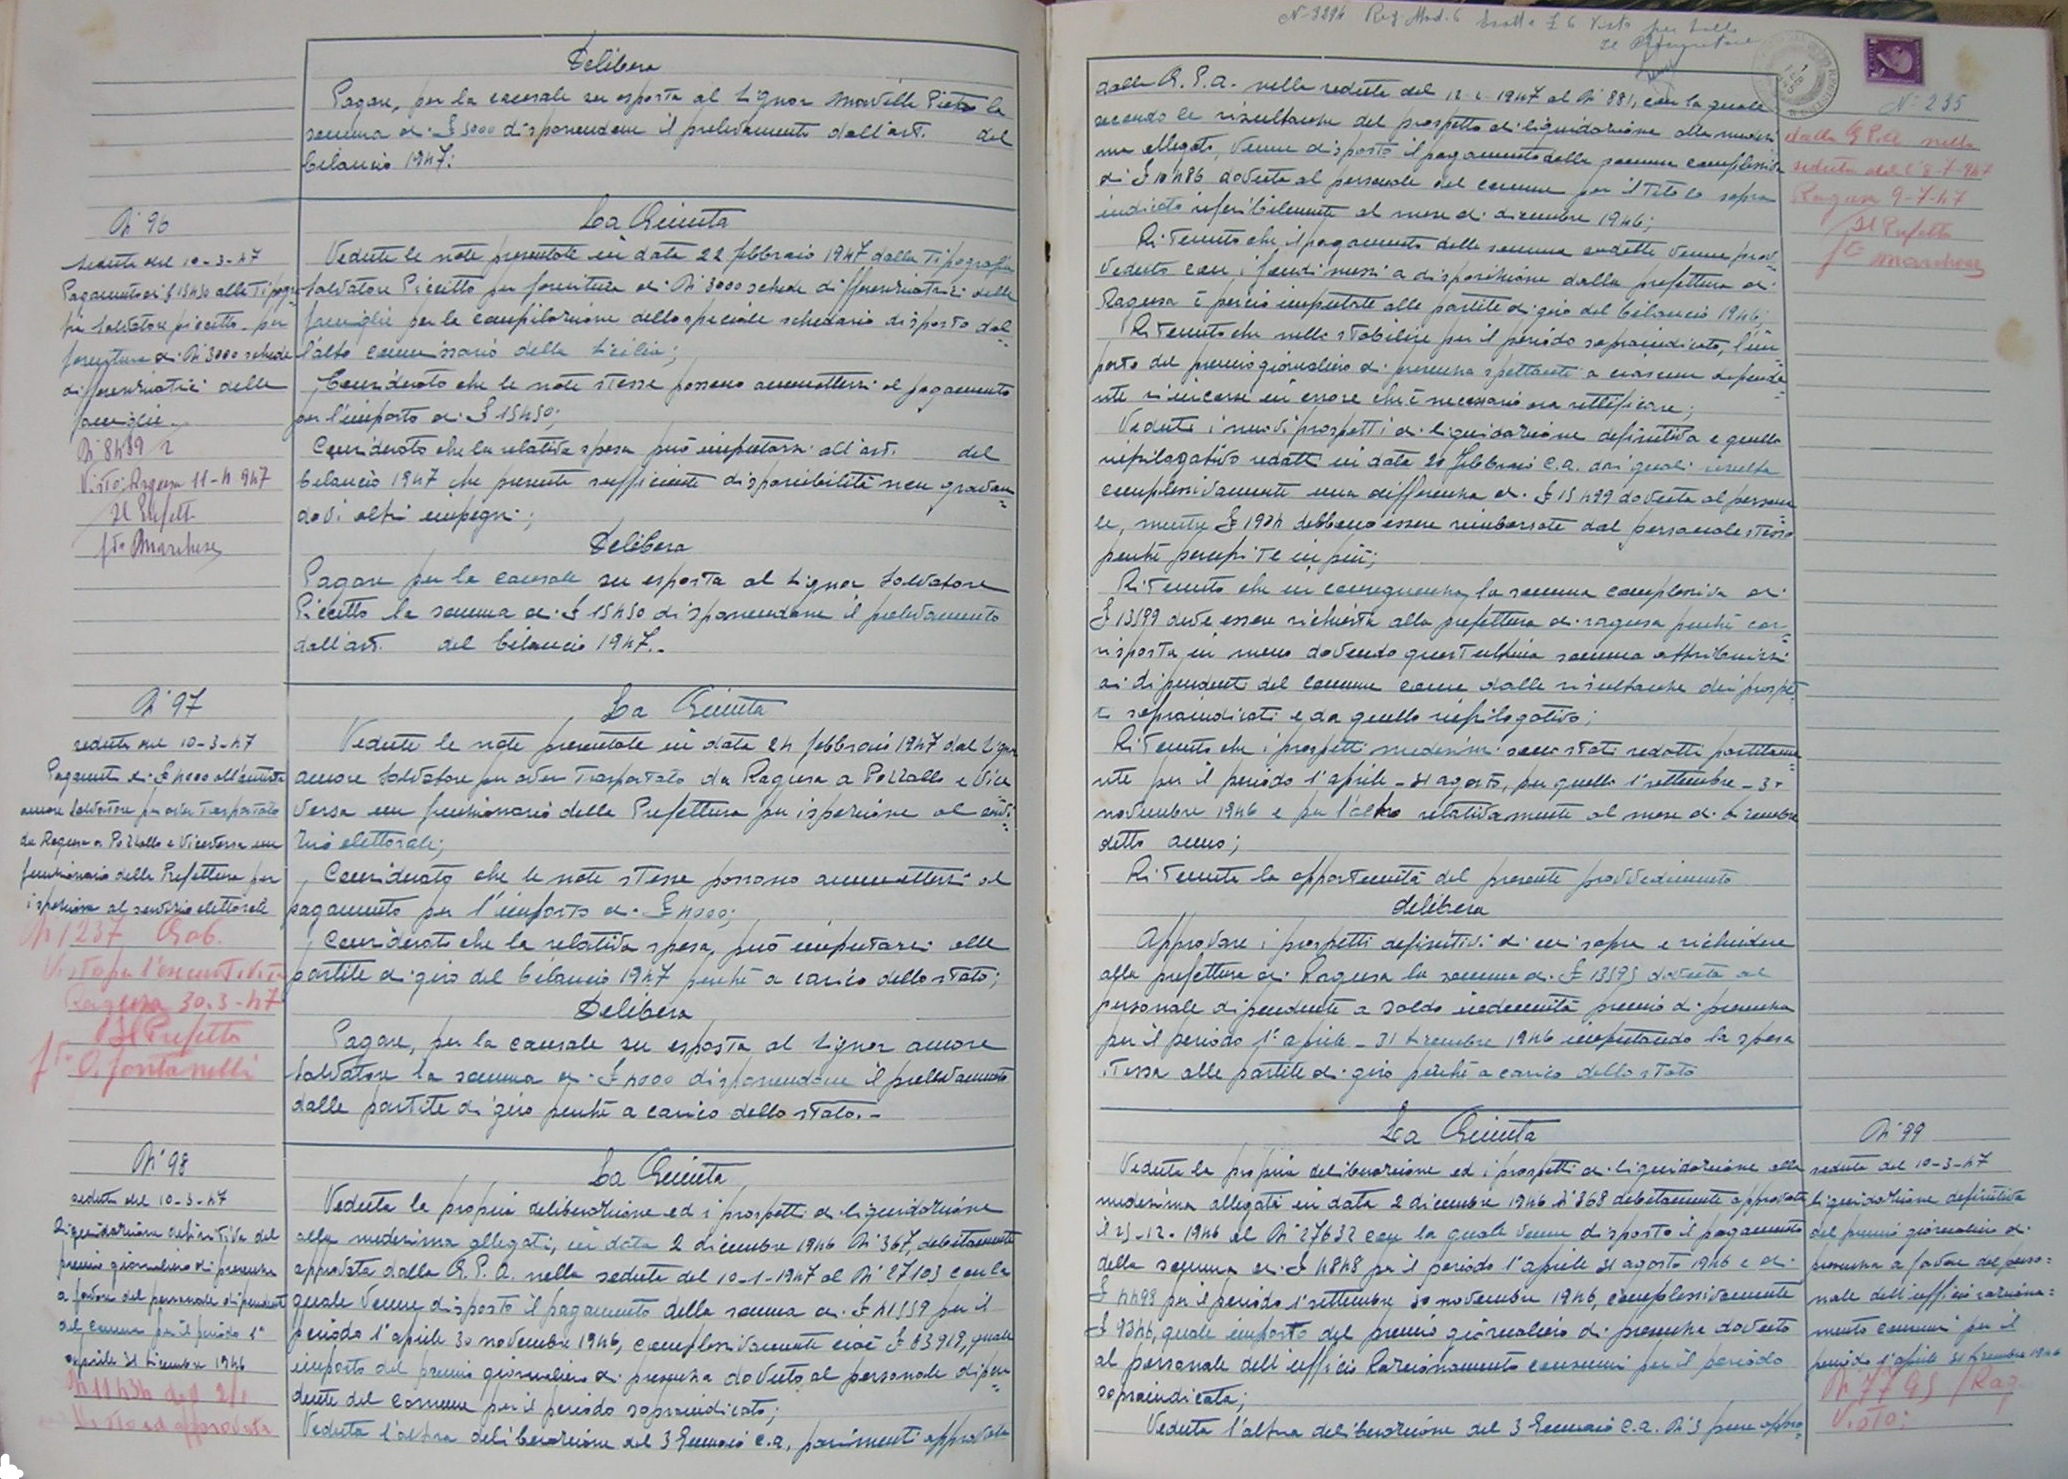 Delibera
Pagare, per la causale su esposta al Signor Pietro la
somma di £ 5000 disponendone il prelevamento dall'art. del
bilancio 1947.
N° 96
seduta del 10-3-47
Pagamento di £ 15450 alla Tipogra-
fia Salvatore Piccitto per
fornitura di N° 3000 schede
differenziatrici delle
famiglie.
N° 8439
Visto: Ragusa 11-4-947
Il Prefetto
f.to Marchese
La Giunta
Vedute le note presentate in data 22 febbraio 1947 dalla Tipografia
Salvatore Piccitto per fornitura di N° 3000 schede differenziatrici delle
famiglie per la compilazione dello speciale schedario disposto dal-
l'alto commissario della Sicilia;
Considerato che le note stesse possono ammettersi al pagamento
per l'importo di £ 15450;
Considerato che la relativa spesa può imputarsi all'art. del
bilancio 1947 che presenta sufficiente disponibilità non gravan=
dovi altri impegni;
Delibera
Pagare per la causale su esposta al Signor Salvatore
Piccitto la somma di £ 15450 disponendone il prelevamento
dall'art. del bilancio 1947.-
N° 97
seduta del 10-3-47
Pagamento di £ 4000 all'autista
amore Salvatore per aver trasportato
da Ragusa a Pozzallo e viceversa un
funzionario della Prefettura per
ispezione al servizio elettorale
N° 1237 Gab.
Visto per l'esecutività
Ragusa 30-3-47
Il Prefetto
f.to O. Fontanelli
La Giunta
Vedute le note presentate in data 24 febbraio 1947 dal Signor
amore Salvatore per aver trasportato da Ragusa a Pozzallo e vice
versa un funzionario della Prefettura per ispezione al servi-
zio elettorale;
Considerato che le note stesse possono ammettersi al
pagamento per l'importo di £ 4000;
Considerato che la relativa spesa, può imputarsi alle
partite di giro del bilancio 1947 perché a carico dello stato;
Delibera
Pagare, per la causale su esposta al Signor amore
Salvatore la somma di £ 4000 disponendone il prelevamento
dalle partite di giro perché a carico dello stato.-
N° 98
seduta del 10-3-47
Liquidazione definitiva del
premio giornaliero di presenza
a favore del personale dipendente
del comune per il periodo 1°
aprile 31 dicembre 1946
N° 11434
Visto ed approvata
La Giunta
Veduta la propria deliberazione ed i prospetti di liquidazione
alla medesima allegati, in data 2 dicembre 1946 N° 367, debitamente
approvata dalla G.P.A. nella seduta del 10-1-1947 al N° 27103 con la
quale venne disposto il pagamento della somma di £ 41559 per il
periodo 1° aprile 30 novembre 1946, complessivamente cioè £ 83919, quale
importo del premio giornaliero di presenza dovuto al personale dipen=
dente del comune per il periodo sopraindicato;
Veduta l'altra deliberazione del 3 Gennaio c.a. parimenti approvata
N° 3394 Reg. Mod. 6 Esatte £ 6 Visto per bollo
Il Procuratore
N° 235
dalla G.P.A. nella seduta del 12-2-1947 al N° 881, con la quale
secondo le risultanze del prospetto di liquidazione alla medesi
ma allegato, venne disposto il pagamento della somma complessiva
di £ 10486 dovuta al personale del comune per il titolo sopra
indicato riferibilmente al mese di dicembre 1946;
Ritenuto che il pagamento delle somme anzidette venne prov-
veduto con i fondi messi a disposizione dalla prefettura di
Ragusa e perciò imputate alle partite di giro del bilancio 1946;
Ritenuto che nello stabilire per il periodo sopraindicato, l'im-
porto del premio giornaliero di presenza spettante a ciascun dipende-
nte si incorse in errore che è necessario ora rettificare;
Veduti i nuovi prospetti di liquidazione definitiva e quello
riepilogativo redatti in data 20 febbraio c.a. dai quali risulta
complessivamente una differenza di £ 15499 dovuta al persona
le, mentre £ 1904 debbono essere rimborsate dal personale stesso
perché percepite in più;
Ritenuto che in conseguenza la somma complessiva di
£ 13599 deve essere richiesta alla prefettura di ragusa perché cor-
risposta in meno dovendo quest'ultima somma attribuirsi
ai dipendenti del comune come dalle risultanze dei prospet
ti sopraindicati e da quello riepilogativo;
Ritenuto che i prospetti medesimi sono stati redatti partitame
nte per il periodo 1° aprile - 31 agosto, per quello 1° settembre - 30
novembre 1946 e per l'altro relativamente al mese di dicembre
detto anno;
Ritenuta la opportunità del presente provvedimento
delibera
Approvare i prospetti definitivi di cui sopra e richiedere
alla prefettura di Ragusa la somma di £ 13595 dovuta al
personale dipendente a saldo indennità premio di presenza
per il periodo 1° aprile - 31 dicembre 1946 imputando la spesa
stessa alle partite di giro perché a carico dello stato
dalla G.P.A. nella
seduta del 8-7-947
Ragusa 9-7-47
Il Prefetto
f.to Marchese
La Giunta
Veduta la propria deliberazione ed i prospetti di liquidazione alla
medesima allegati in data 2 dicembre 1946 N° 368 debitamente approvata
il 25-12-1946 al N° 27632 con la quale venne disposto il pagamento
della somma di £ 4848 per il periodo 1° aprile 31 agosto 1946 e di
£ 4498 per il periodo 1° settembre 30 novembre 1946, complessivamente
£ 9346, quale importo del premio giornaliero di presenza dovuto
al personale dell'ufficio Razionamento consumi per il periodo
sopraindicato;
Veduta l'altra deliberazione del 3 Gennaio c.a. N° 3 pure appro=
N° 99
seduta del 10-3-47
Liquidazione definitiva
del premio giornaliero di
presenza a favore del perso=
nale dell'ufficio raziona=
mento consumi per il
periodo 1° aprile 31 dicembre 1946
N° 7795 / Rag.
Visto: